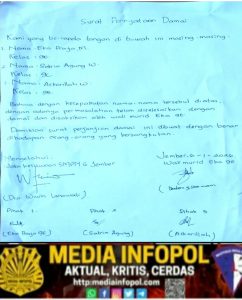 Surat Pernyataan Damai
Kami yang bertanda tangan di bawah ini masing-masing:
1. Nama : Eko Prayo.N.
Kelas : 9E
2. Nama : Satria Agung W.
Kelas : 9E
3. Nama : Ackardiah W.
Kelas : 9E
Bahwa dengan kesepakatan nama-nama tersebut diatas,
dengan adanya permasalahan telah diselesaikan dengan
damai dan disaksikan oleh wali murid Eko 9E
Demikian surat perjanjian damai ini dibuat dengan benar
dihadapan orang-orang yang bersangkutan.
Mengetahui
Jember,
Wali murid Eko 9E
Jember
Pihak 1
Pihak 2
Pihak 3
(Satria Agung)
MEDIA INFOPOL
AKTUAL, KRITIS, CERDAS
http:mediainfopol.com